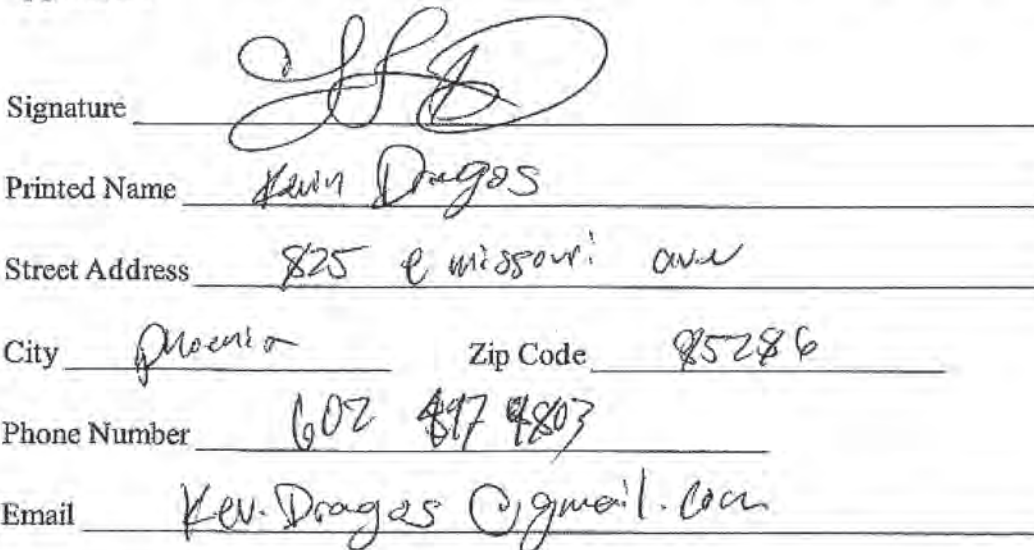 Signature
Printed Name Kevin Dragos
Street Address 825 e missouri ave
City phoenix Zip Code 85286
Phone Number 602 4803
Email Kev.Dragos@gmail.com